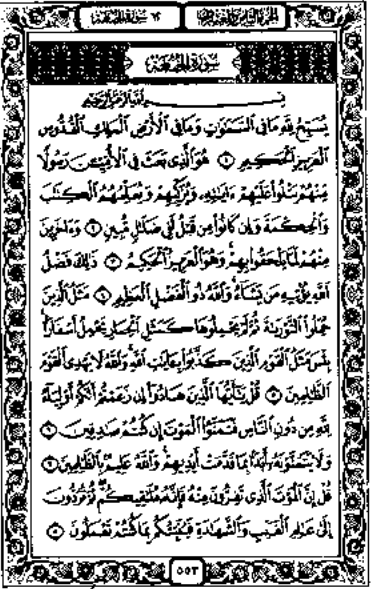 الجزء الثامن والعشرون
٦٢ سورة الجمعة
سورة الجمعة
بسم الله الرحمن الرحيم
يُسَبِّحُ لِلَّهِ مَا فِي السَّمَٰوَٰتِ وَمَا فِي الْأَرْضِ الْمَلِكِ الْقُدُّوسِ
الْعَزِيزِ الْحَكِيمِ ١ هُوَ الَّذِي بَعَثَ فِي الْأُمِّيِّـۧنَ رَسُولًا
مِّنْهُمْ يَتْلُوا عَلَيْهِمْ ءَايَٰتِهِ وَيُزَكِّيهِمْ وَيُعَلِّمُهُمُ الْكِتَٰبَ
وَالْحِكْمَةَ وَإِن كَانُوا مِن قَبْلُ لَفِي ضَلَٰلٍ مُّبِينٍ ٢ وَءَاخَرِينَ
مِنْهُمْ لَمَّا يَلْحَقُوا بِهِمْ وَهُوَ الْعَزِيزُ الْحَكِيمُ ٣ ذَٰلِكَ فَضْلُ
اللَّهِ يُؤْتِيهِ مَن يَشَاءُ وَاللَّهُ ذُو الْفَضْلِ الْعَظِيمِ ٤ مَثَلُ الَّذِينَ
حُمِّلُوا التَّوْرَىٰةَ ثُمَّ لَمْ يَحْمِلُوهَا كَمَثَلِ الْحِمَارِ يَحْمِلُ أَسْفَارًا
بِئْسَ مَثَلُ الْقَوْمِ الَّذِينَ كَذَّبُوا بِـَٔايَٰتِ اللَّهِ وَاللَّهُ لَا يَهْدِي الْقَوْمَ
الظَّٰلِمِينَ ٥ قُلْ يَٰأَيُّهَا الَّذِينَ هَادُوا إِن زَعَمْتُمْ أَنَّكُمْ أَوْلِيَاءُ
لِلَّهِ مِن دُونِ النَّاسِ فَتَمَنَّوُا الْمَوْتَ إِن كُنتُمْ صَٰدِقِينَ ٦
وَلَا يَتَمَنَّوْنَهُ أَبَدًا بِمَا قَدَّمَتْ أَيْدِيهِمْ وَاللَّهُ عَلِيمٌ بِالظَّٰلِمِينَ ٧
قُلْ إِنَّ الْمَوْتَ الَّذِي تَفِرُّونَ مِنْهُ فَإِنَّهُ مُلَٰقِيكُمْ ثُمَّ تُرَدُّونَ
إِلَىٰ عَٰلِمِ الْغَيْبِ وَالشَّهَٰدَةِ فَيُنَبِّئُكُم بِمَا كُنتُمْ تَعْمَلُونَ ٨
٥٥٣